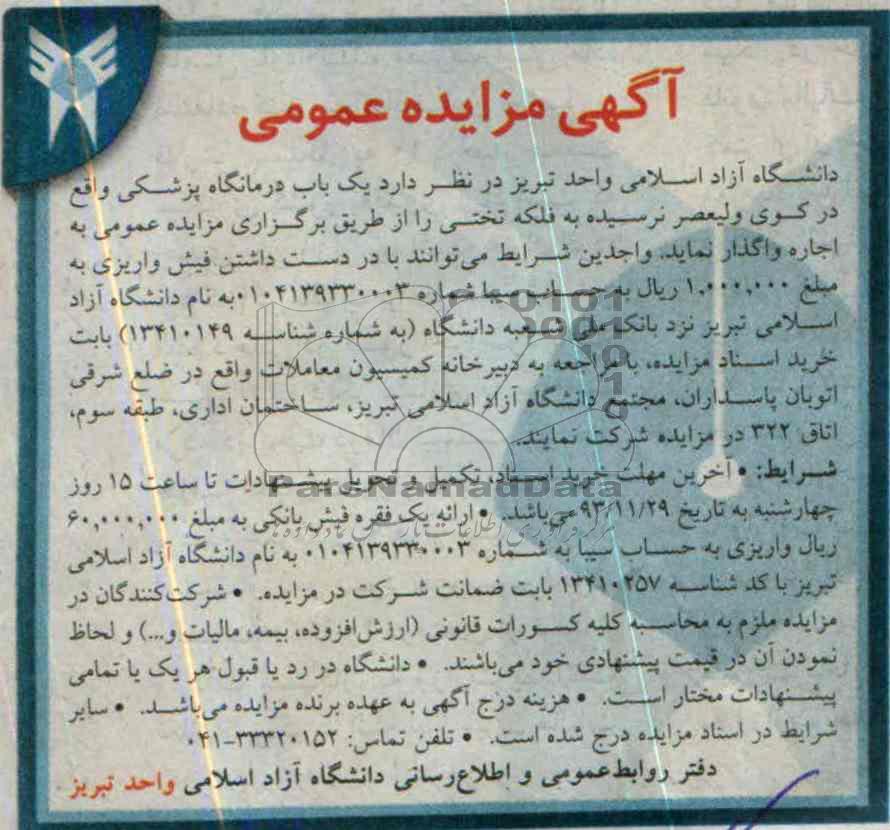 آگهی مزایده عمومی
دانشگاه آزاد اسلامی واحد تبریز در نظر دارد یک باب درمانگاه پزشکی واقع
در کوی ولیعصر نرسیده به فلکه تختی را از طریق برگزاری مزایده عمومی به
اجاره واگذار نماید. واجدین شرایط می‌توانند با در دست داشتن فیش واریزی به
مبلغ ۱,۰۰۰,۰۰۰ ریال به حساب سیبا شماره ۰۱۰۴۱۳۹۳۳۰۰۰۳ به نام دانشگاه آزاد
اسلامی تبریز نزد بانک ملی شعبه دانشگاه (به شماره شناسه ۱۳۴۱۰۱۴۹) بابت
خرید اسناد مزایده، با مراجعه به دبیرخانه کمیسیون معاملات واقع در ضلع شرقی
اتوبان پاسداران، مجتمع دانشگاه آزاد اسلامی تبریز، ساختمان اداری، طبقه سوم،
اتاق ۳۲۲ در مزایده شرکت نمایند.
شرایط: • آخرین مهلت خرید اسناد، تکمیل و تحویل پیشنهادات تا ساعت ۱۵ روز
چهارشنبه به تاریخ ۹۳/۱۱/۲۹ می‌باشد. • ارائه یک فقره فیش بانکی به مبلغ ۶۰,۰۰۰,۰۰۰
ریال واریزی به حساب سیبا به شماره ۰۱۰۴۱۳۹۳۳۰۰۰۳ به نام دانشگاه آزاد اسلامی
تبریز با کد شناسه ۱۳۴۱۰۲۵۷ بابت ضمانت شرکت در مزایده. • شرکت‌کنندگان در
مزایده ملزم به محاسبه کلیه کسورات قانونی (ارزش‌افزوده، بیمه، مالیات و...) و لحاظ
نمودن آن در قیمت پیشنهادی خود می‌باشند. • دانشگاه در رد یا قبول هر یک یا تمامی
پیشنهادات مختار است. • هزینه درج آگهی به عهده برنده مزایده می‌باشد. • سایر
شرایط در اسناد مزایده درج شده است. • تلفن تماس: ۳۳۳۲۰۱۵۲-۰۴۱
دفتر روابط‌عمومی و اطلاع‌رسانی دانشگاه آزاد اسلامی واحد تبریز
ParsNamadData